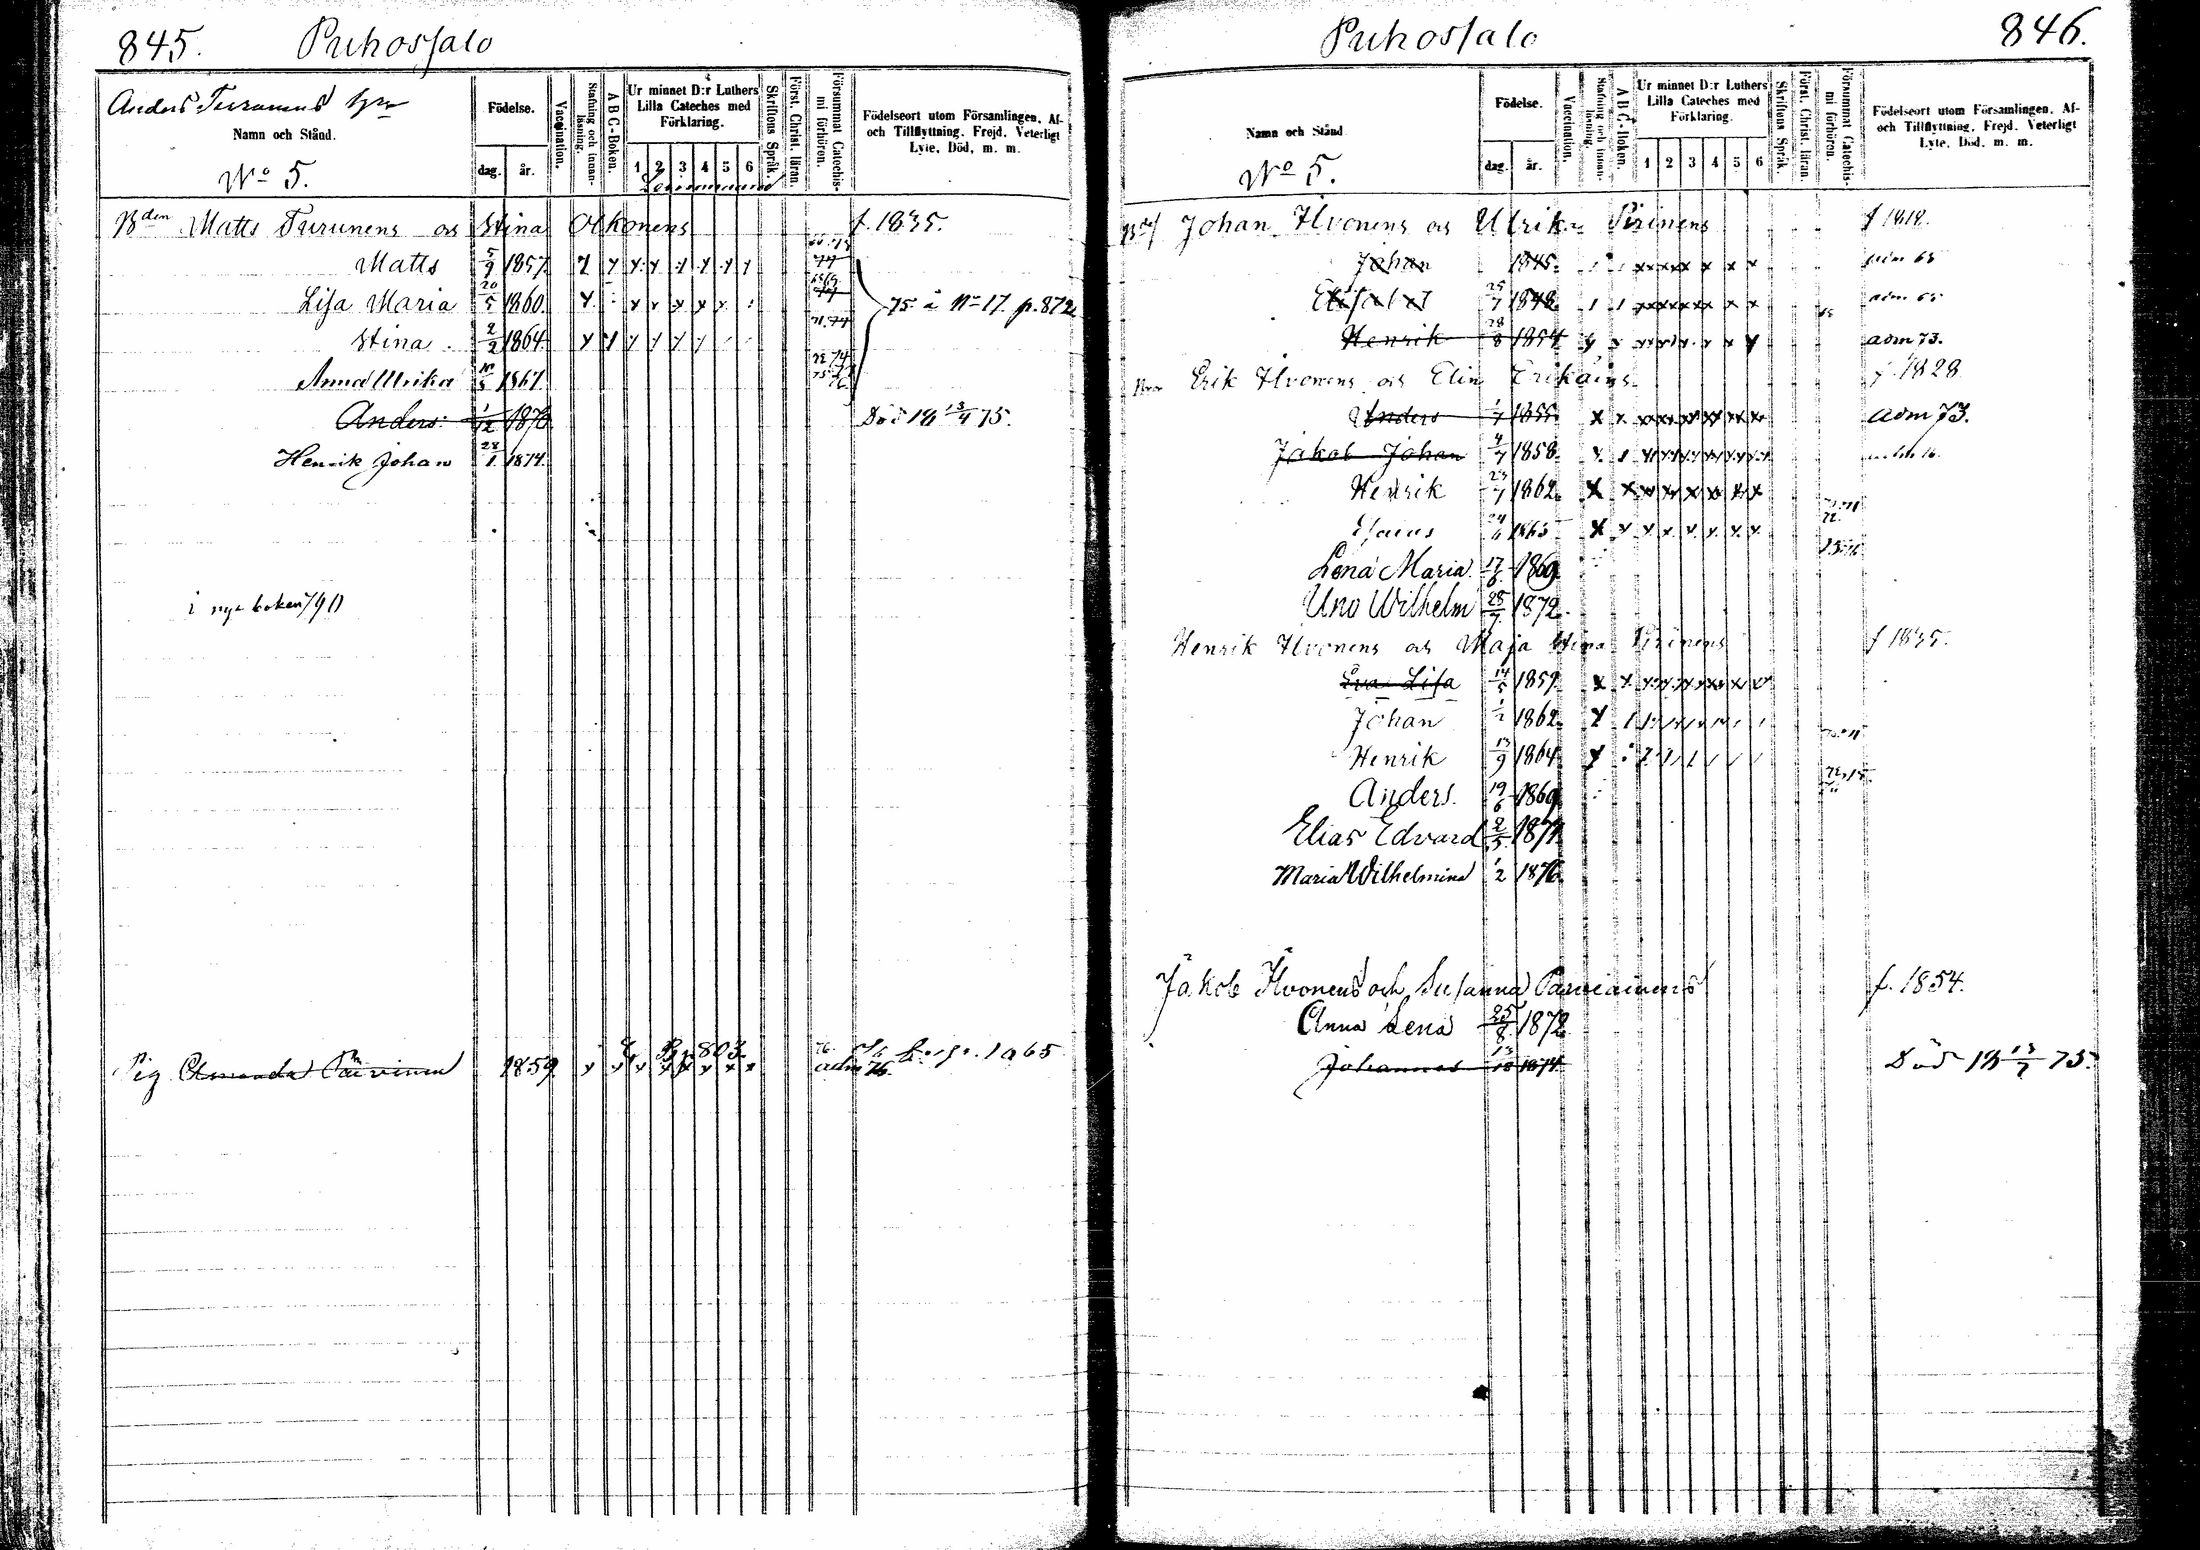 845. Puhossalo
Anders Turunens
Namn och Stånd.
No 5.
Födelse.
dag. år.
Vaccination.
Stafning och innanläsning.
A B C-Boken.
Ur minnet D:r Luthers Lilla Cateches med Förklaring.
1 2 3 4 5 6
Skriftens Språk.
Först. Christ. läran.
Försummat Catechismi förhören.
Födelseort utom Församlingen, Af- och Tillflyttning, Frejd, Veterligt Lyte, Död, m. m.
Bden Matts Turunens och Stina Olkonens f. 1835.
Matts 5/9 1857
Lisa Maria 20/5 1860. 75 å No 17. p. 872
Stina 2/2 1864
Anna Ulrika 10/5 1867
Anders 1/12 1870 Död 18 13/4 75.
Henrik Johan 28/1 1874.
i nya boken 790
Pig Amanda Parvinen 1859 adm 76
846. Puhossalo
Namn och Stånd
No 5.
Födelse.
dag. år.
Vaccination.
Stafning och innanläsning.
A B C-Boken.
Ur minnet D:r Luthers Lilla Cateches med Förklaring.
1 2 3 4 5 6
Skriftens Språk.
Först. Christ. läran.
Försummat Catechismi förhören.
Födelseort utom Församlingen, Af- och Tillflyttning, Frejd, Veterligt Lyte, Död, m. m.
Johan Ilvonens och Ulrika Pirinens f 1818.
Johan 1845. adm 63
Elisabet 25/7 1848 adm 65
Henrik 28/8 1854 adm 73.
Erik Ilvonens och Elin Erikäins f. 1828
Anders 1/7 1855 adm 73.
Jakob Johan 4/7 1858
Henrik 23/7 1862
Esaias 24/6 1865
Lena Maria 17/6 1869
Uno Wilhelm 28/7 1872
Henrik Ilvonens och Maja Stina Pirinens f 1835.
Eva Lisa 14/5 1859
Johan 1/2 1862
Henrik 13/9 1864
Anders. 19/6 1869
Elias Edvard 2/5 1871
Maria Wilhelmina 1/2 1876
Jakob Ilvonens och Susanna Parviainens f. 1854.
Anna Lena 25/8 1872
Johannes 13/10 1874 Död 18 13/7 75.